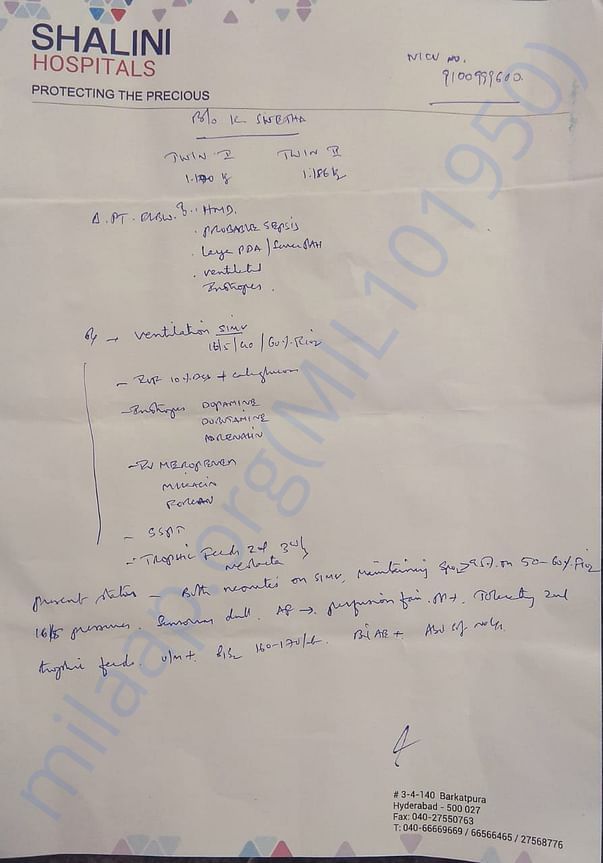 SHALINI
HOSPITALS
PROTECTING THE PRECIOUS
NICU NO.
9100999600.
B/o K. SWETHA
TWIN I TWIN II
1.186 kg
Δ. PT. HMD.
. PROBABLE SEPSIS
. Large PDA / Severe PAH
. Ventilated
Inotropes.
Rx → Ventilation SIMV
16/5/40 / 60% FiO2
- IVF 10% + Ca. gluconate
- Inotropes DOPAMINE
DOBUTAMINE
ADRENALIN
- IV MEROPENEM
MIKACIN
FORCAN
- SSPT
- Trophic Feeds 2ml 3rd
Neolacta
Present status - Both neonates on SIMV, maintaining SpO2 >95% on 50-60% FiO2
16/5 pressures. Sensorium dull. AF → perfusion fair. Tolerating 2ml
trophic feeds. U/M+. 160-170/ BLAE +
# 3-4-140 Barkatpura
Hyderabad - 500 027
Fax: 040-27550763
T: 040-66669669 / 66566465 / 27568776
milaap.org(MIL101950)